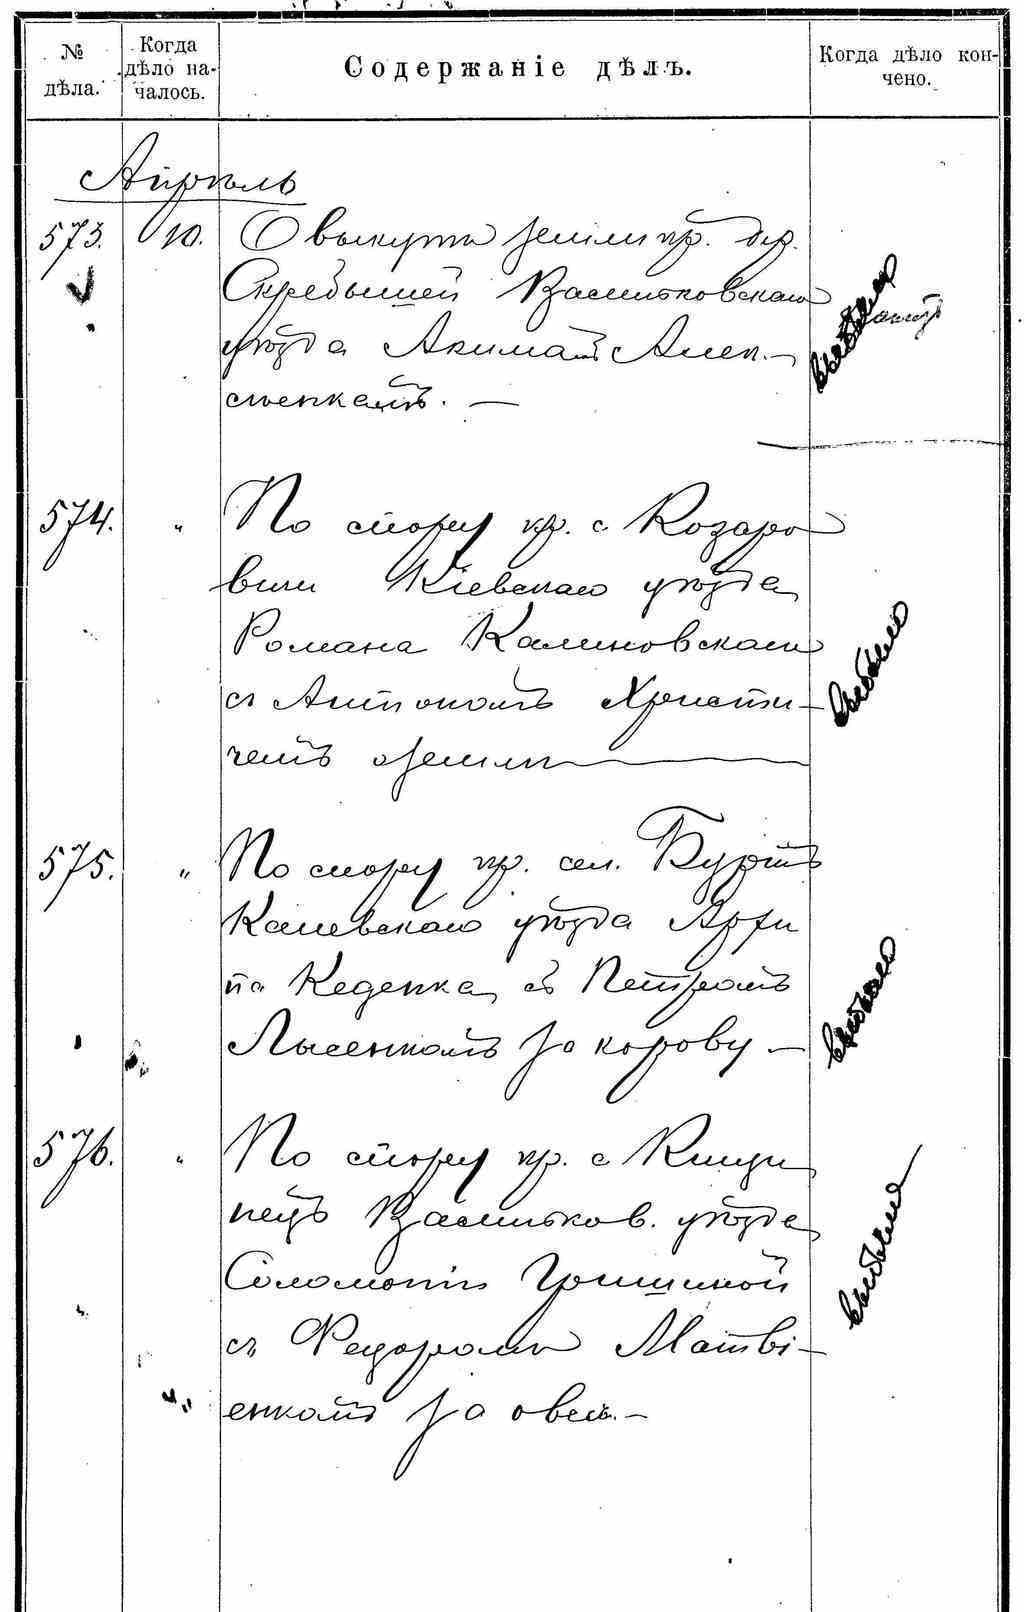 № дѣла.
Когда дѣло началось.
Содержаніе дѣлъ.
Когда дѣло кончено.
Апрѣль
573. 10. О выкупѣ земли кр. дер.
Скребышей Васильковскаго
уѣзда Акимомъ Алек-
сѣенкомъ. —
выбыло
574. " По спору кр. с Козаро
вичи Кіевскаго уѣзда
Романа Калиновскаго
съ Антономъ Христи-
чемъ о земли
выбыло
575. " По спору кр. сел. Буртъ
Каневскаго уѣзда Архи
па Кеденка съ Петромъ
Лысенкомъ за корову —
выбыло
576. " По спору кр. с Кищи
нецъ Васильков. уѣзда
Соломоніи Гришиной
съ Федоромъ Матві-
енкомъ за овесъ. —
выбыло